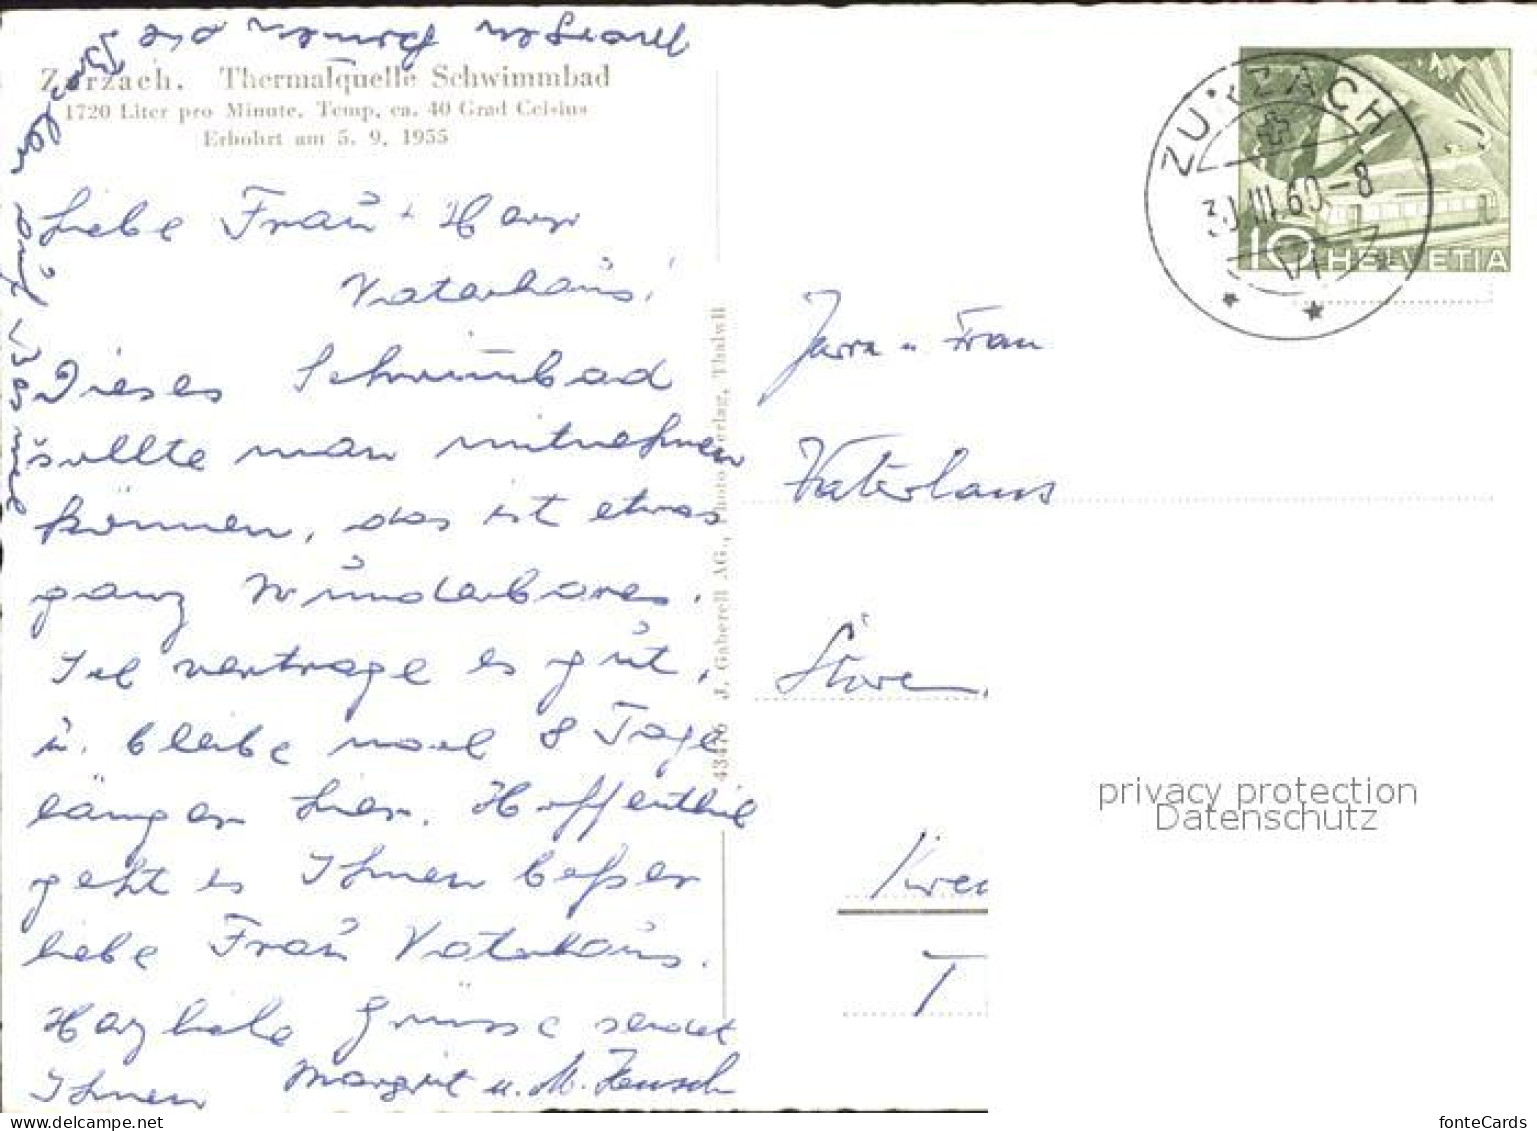 Zurzach. Thermalquelle Schwimmbad
1720 Liter pro Minute. Temp. ca. 40 Grad Celsius
Erbohrt am 5. 9. 1955
Liebe Frau + Herr
Vaterhaus!
Dieses Schwimmbad
sollte man mitnehmen
können, das ist etwas
ganz Wunderbares.
Ich vertrage es gut,
u. bleibe noch 8 Tage
länger hier. Hoffentlich
geht es Ihnen beßer
liebe Frau Vaterhaus.
Herzliche Grüsse sendet
Ihnen Margrit u. M.
43476 J. Gaberell AG., Photo-Verlag, Thalwil
ZURZACH
30.III.60-8
10 HELVETIA
Herrn u. Frau
Vaterhaus
Store
T
privacy protection
Datenschutz
fonteCards